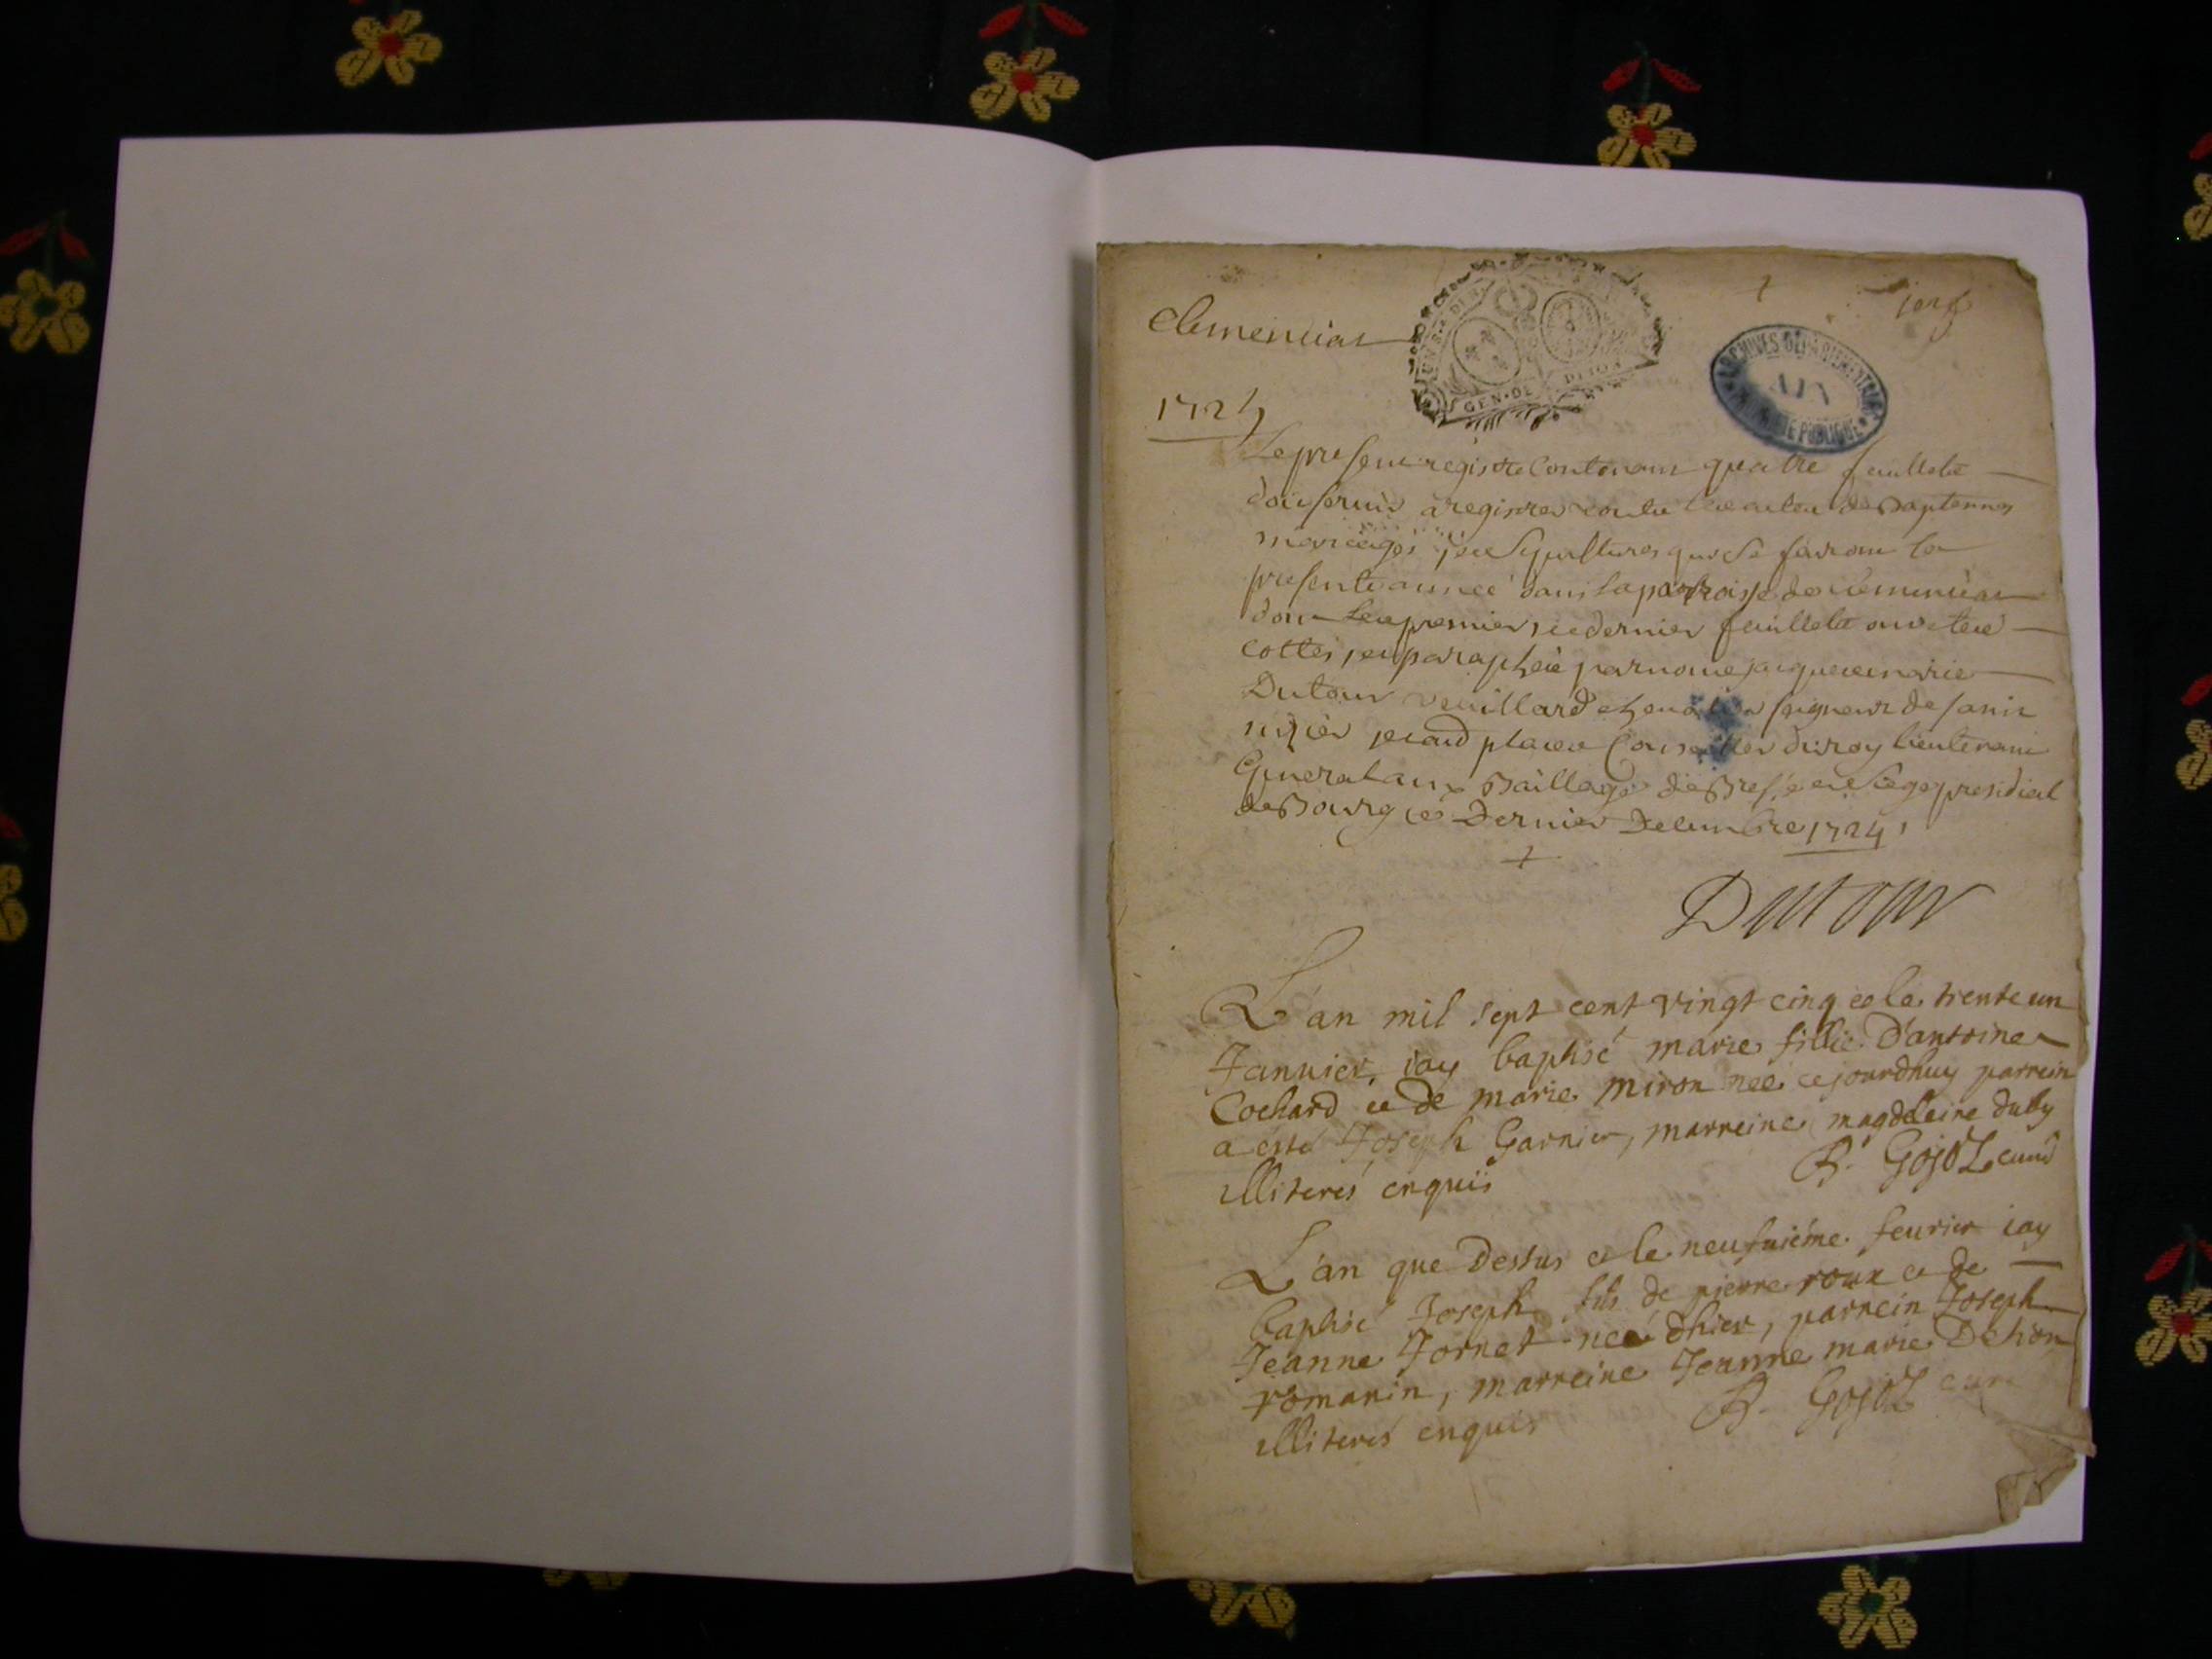 Clemenciat
1725
GEN·DE DIJON
ARCHIVES DÉPARTEMENTALES
AIN
PUBLIQUE
Le present registre Contenant quatre feuillets
doit servir a registrer les actes de Baptemes
mariages et Sepultures qui se fairont la
presente année dans la parroisse de Clemenciat
dont le premier et dernier feuillets ont eté
cottés et paraphés par nous jacques marie
Dutour Veuillard chevalier seigneur de saint
nizier et autres places Conseiller du roy lieutenant
General aux Baillage de Bresse et Siege presidial
de Bourg ce Dernier Decembre 1724
Dutour
L'an mil sept cent vingt cinq et le trente un
Januier, iay baptisé marie fillie D'antoine
Cochard et de marie miron neé cejourdhuy parrein
a esté Joseph Garnier, marreine magdeleine duby
illiterés enquis
B. Gojoz curé
L'an que Dessus et le neufuiéme feurier iay
baptisé Joseph fils de pierre roux et de
Jeanne Jornet neé dhier, parrein Joseph
romanin, marreine Jeanne marie Dehion
illiterés enquis
B. Gojoz curé